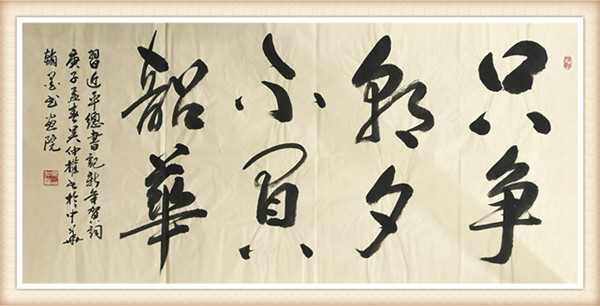 只争
朝夕
不負
韶華
習近平總書記新年賀詞
庚子孟春吴仲书於中華
翰墨书画院